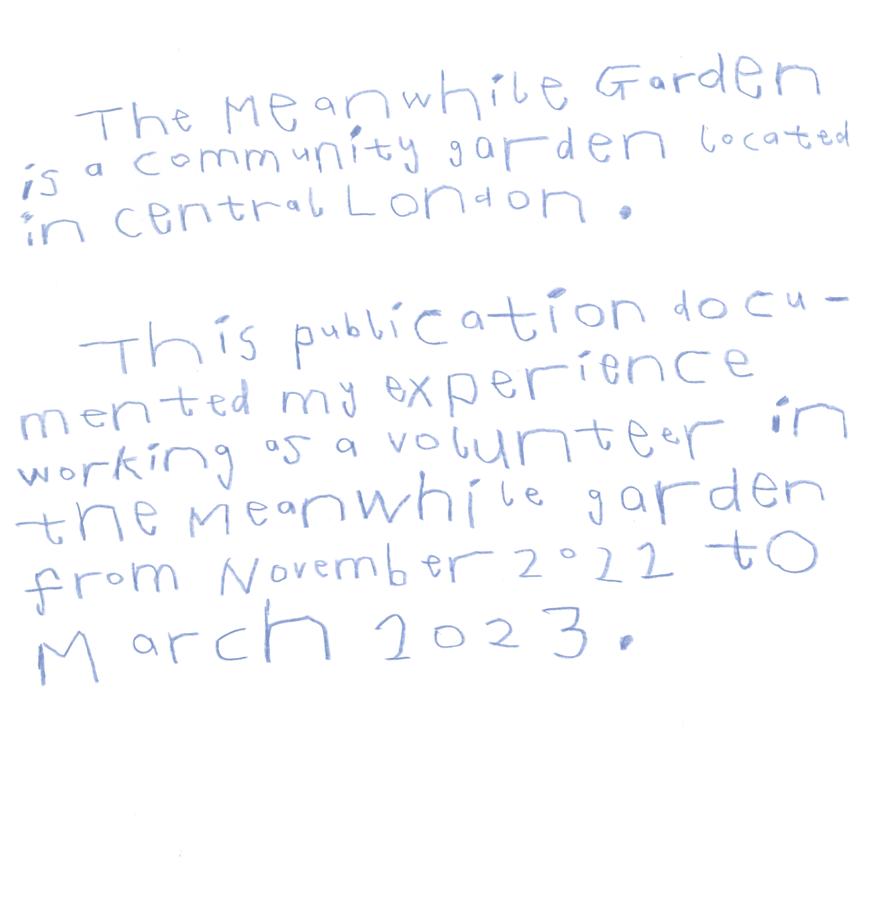 The Meanwhile Garden
is a community garden located
in central London.
This publication docu-
mented my experience
working as a volunteer in
the Meanwhile garden
from November 2022 to
March 2023.